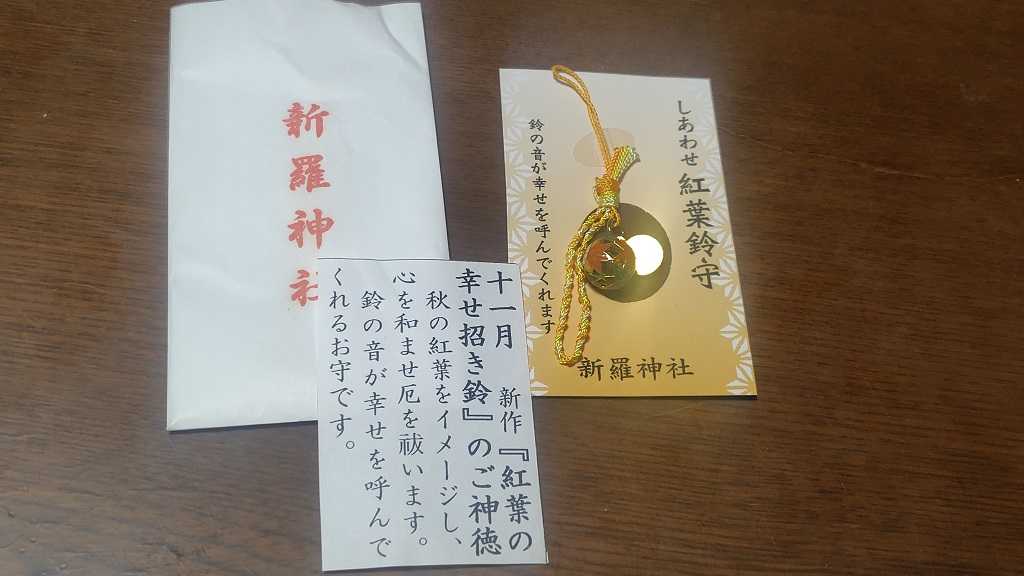 新羅神社
しあわせ紅葉鈴守
鈴の音が幸せを呼んでくれます
新羅神社
十一月 新作『紅葉の
幸せ招き鈴』のご神徳
秋の紅葉をイメージし、
心を和ませ厄を祓います。
鈴の音が幸せを呼んで
くれるお守です。